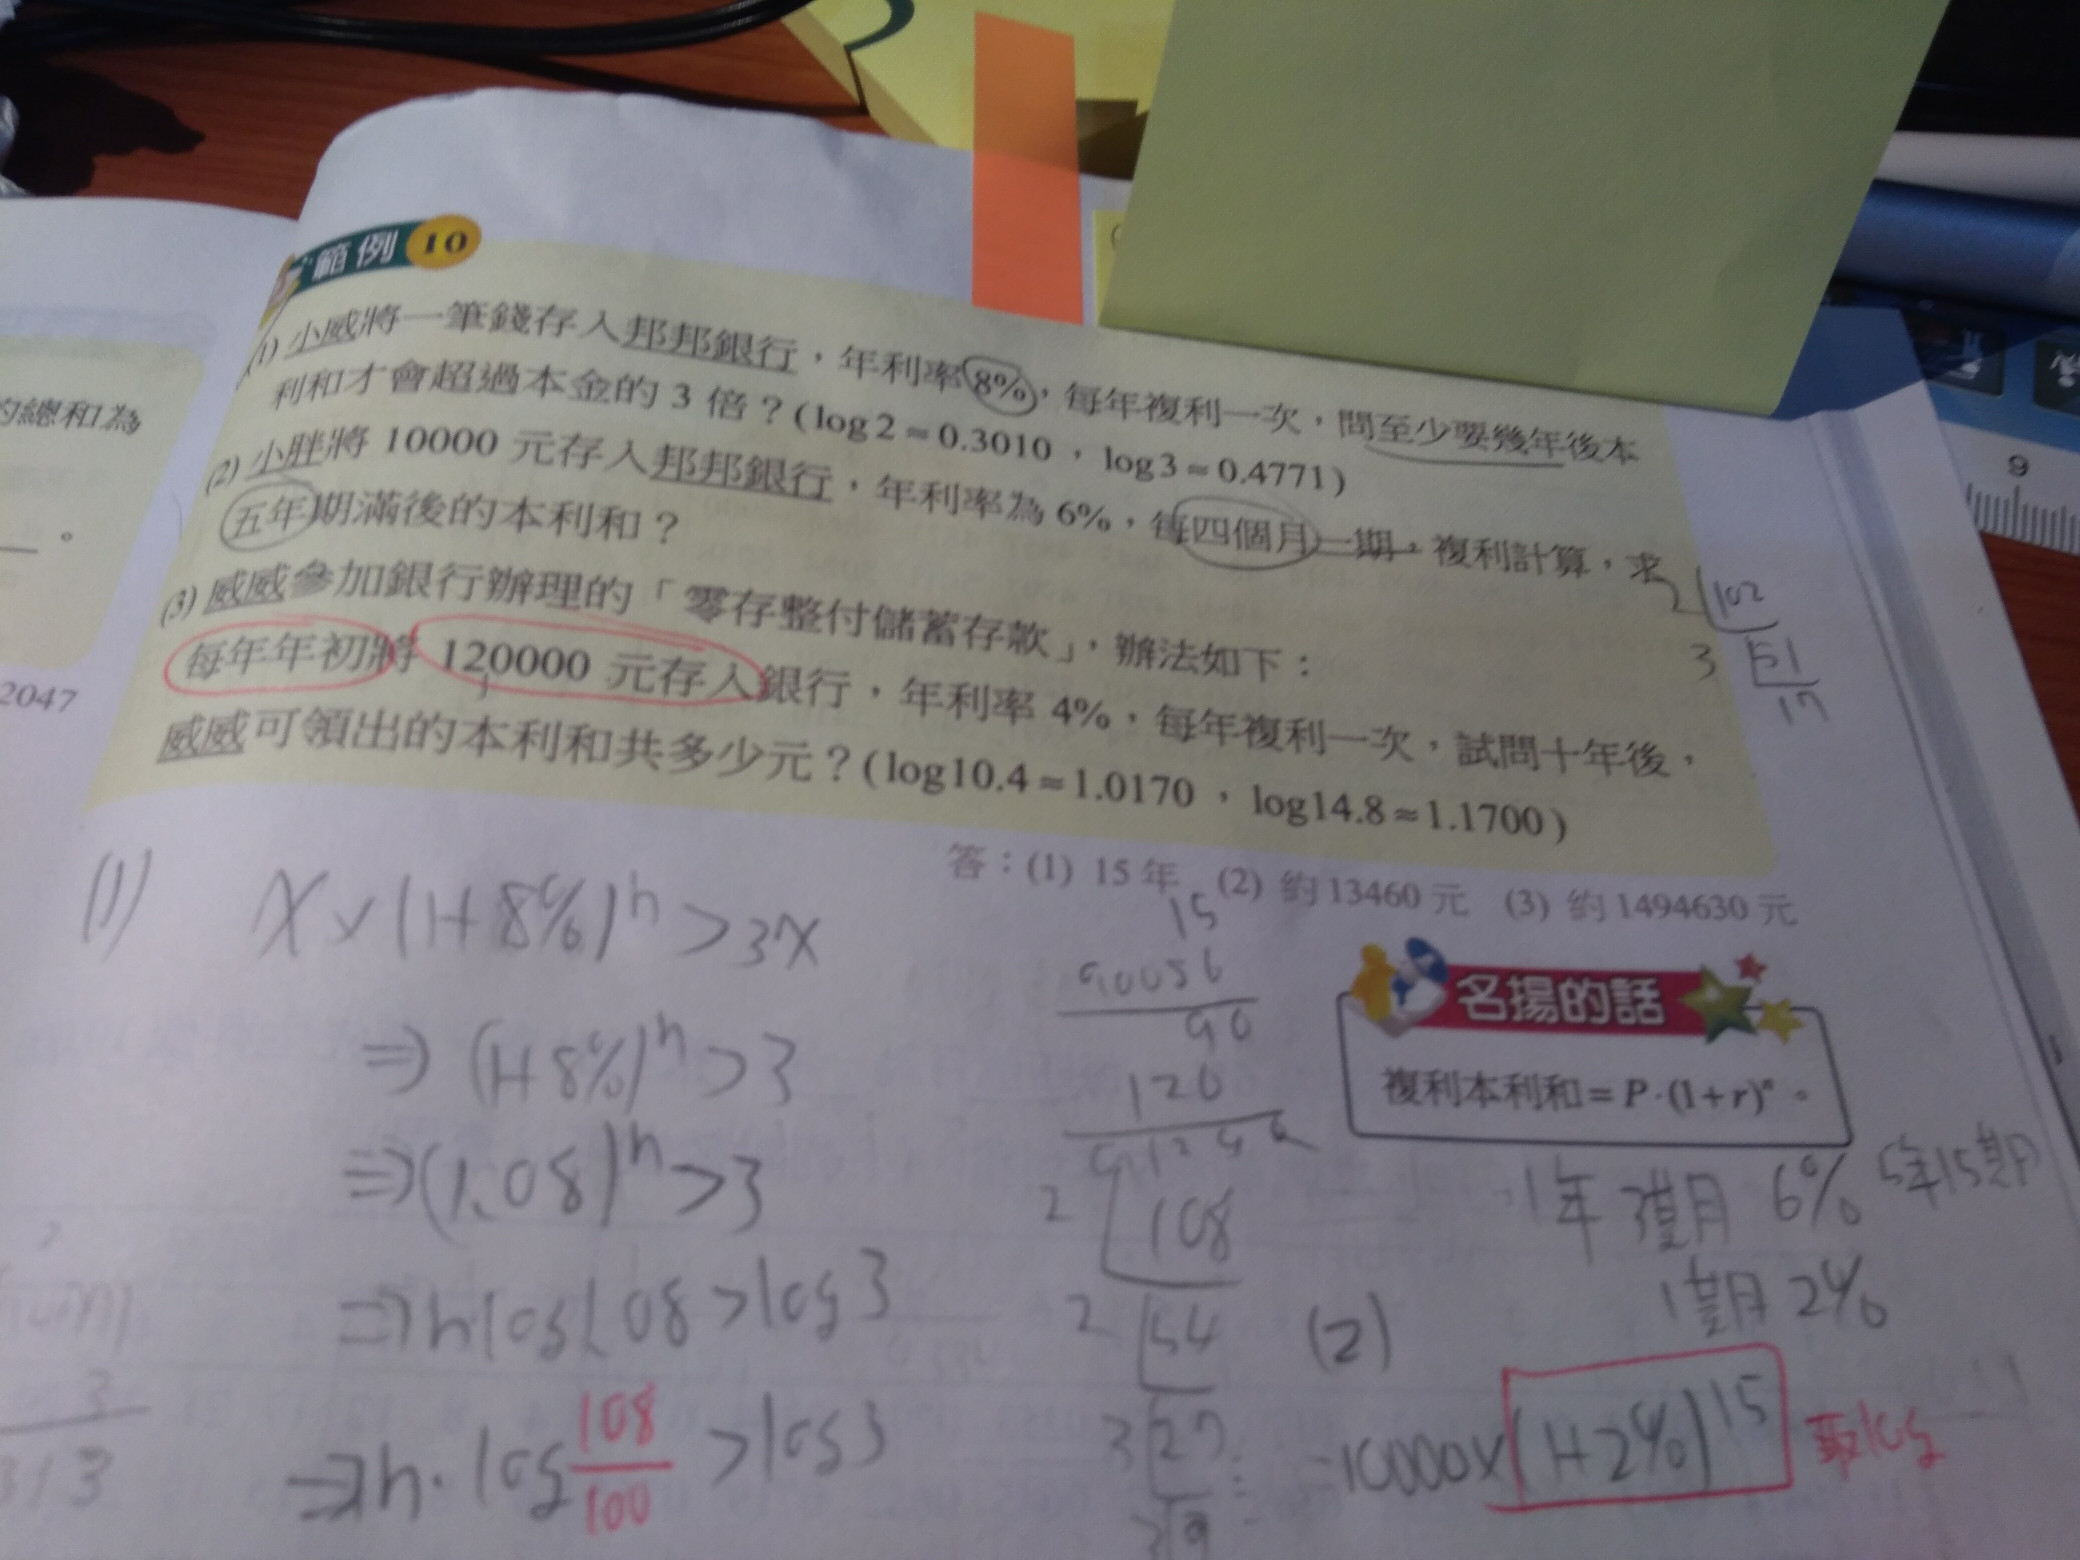 範例 10
(1) 小威將一筆錢存入邦邦銀行，年利率8%，每年複利一次，問至少要幾年後本
利和才會超過本金的 3 倍？(log2≈0.3010，log3≈0.4771)
(2) 小胖將 10000 元存入邦邦銀行，年利率為 6%，每四個月一期，複利計算，求
五年期滿後的本利和？
(3) 威威參加銀行辦理的「零存整付儲蓄存款」，辦法如下：
每年年初將 120000 元存入銀行，年利率 4%，每年複利一次，試問十年後，
威威可領出的本利和共多少元？(log10.4≈1.0170，log14.8≈1.1700)
答：(1) 15 年 (2) 約 13460 元 (3) 約 1494630 元
的總和為
。
2047
2 102
3 51
17
9
(1) X×(1+8%)ⁿ>3X
⇒ (1+8%)ⁿ>3
⇒(1.08)ⁿ>3
⇒nlog1.08>log3
⇒n·log108/100>log3
15
90
120
2 108
2 54
3 27
9
名揚的話
複利本利和=P·(1+r)ⁿ。
1年 3個月 6% 5年15期
1期 2%
(2)
=10000×(1+2%)¹⁵ 取log
3
313